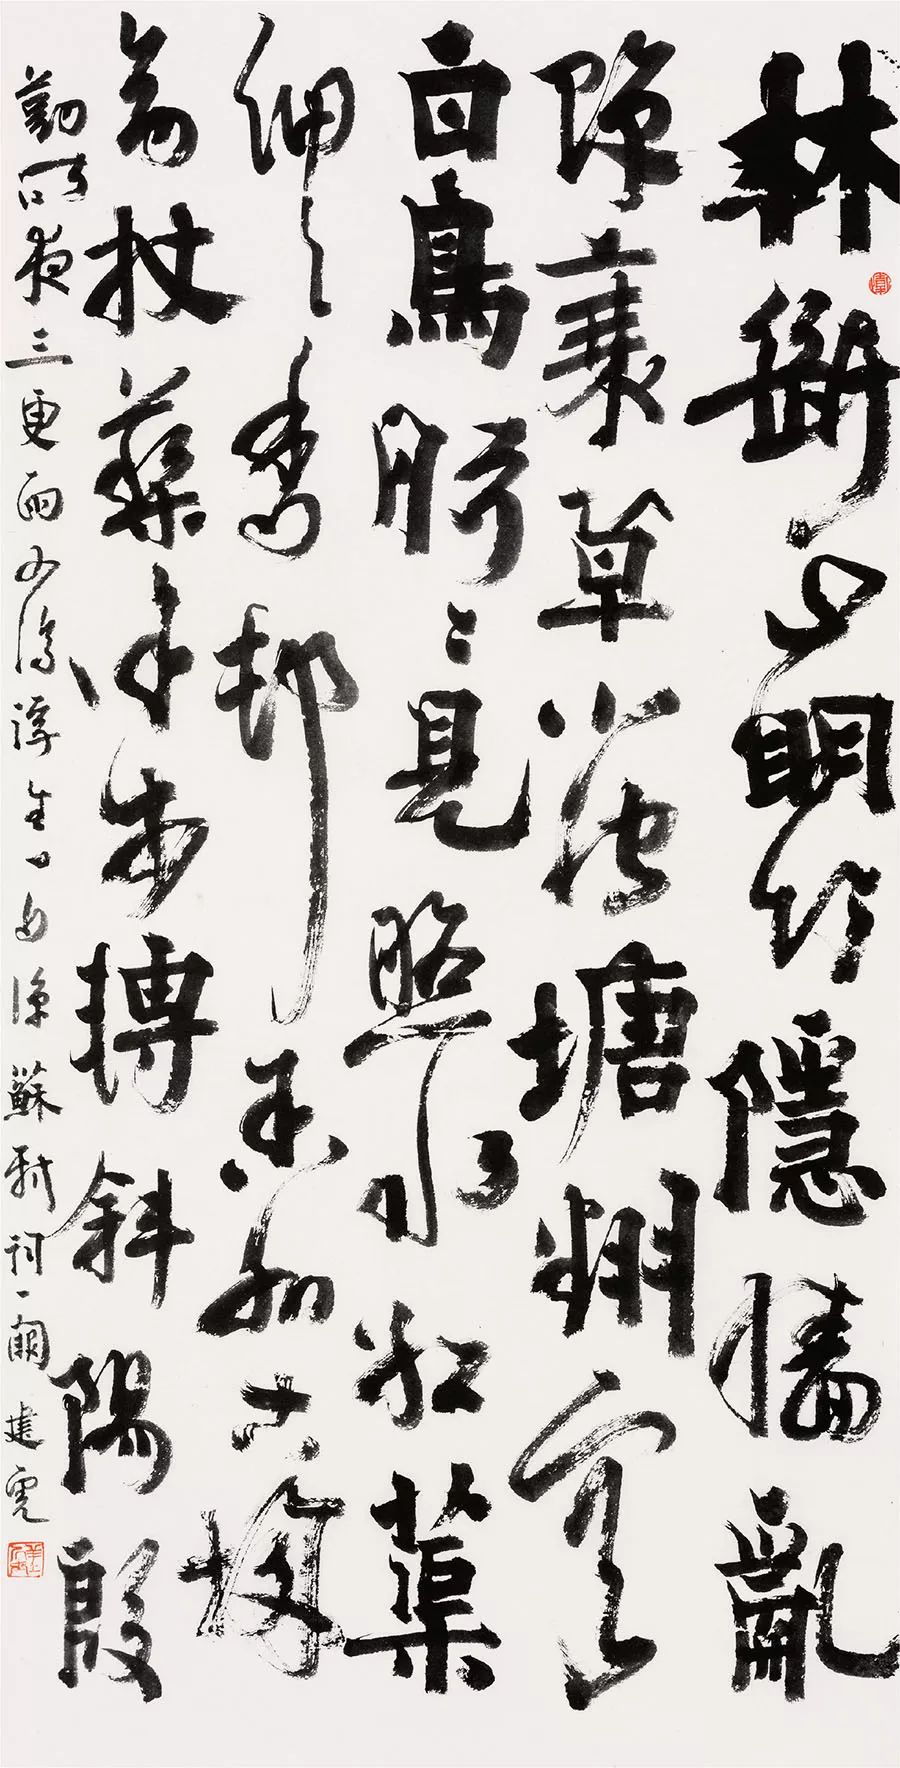 林斷山明竹隱牆亂
蟬衰草小池塘翻空
白鳥時時見照水紅蕖
細細香村舍外古城
旁杖藜徐步轉斜陽殷
勤昨夜三更雨又得浮生一日涼 蘇軾詞一闋 建